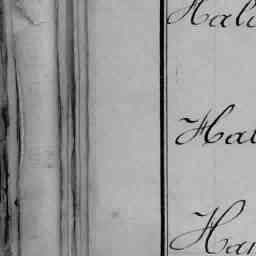 Hal
Hal
Han